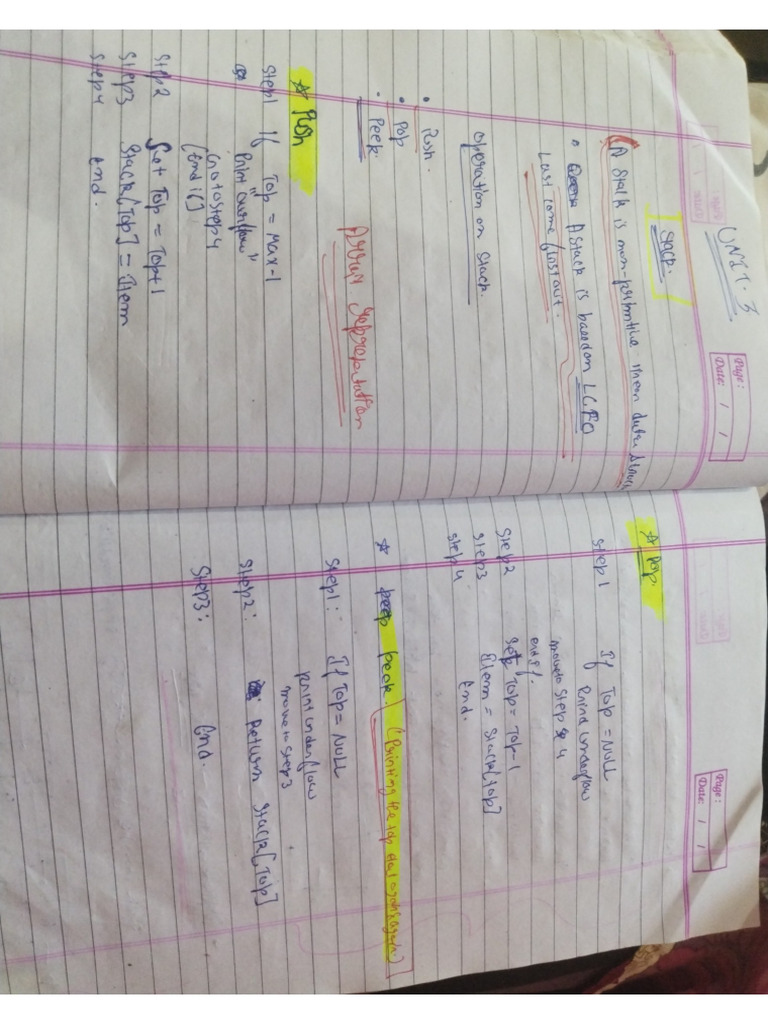 Page:
Date: / /
UNIT. 3
Stack.
A Stack is non-primitive linear data struc
A Stack is based on LCFO
Last come first out.
operation on Stack.
Push.
Pop
Peek.
Array representation
* Push
Step1 If Top = Max-1
Print "overflow"
Go to step 4
[End if]
Step2 Set Top = Top+1
Step3 Stack[Top] = Item
Step4 End.
Page:
Date: / /
* Pop.
Step1 If Top = NULL
Print underflow
move to step 4
end if.
Step2 Set Top = Top-1
Step3 Item = Stack[top]
Step4 End.
* peek. (Printing the top again & again.)
Step1: If Top = NULL
print underflow
move to step3
Step2: Return Stack[Top]
Step3: End.